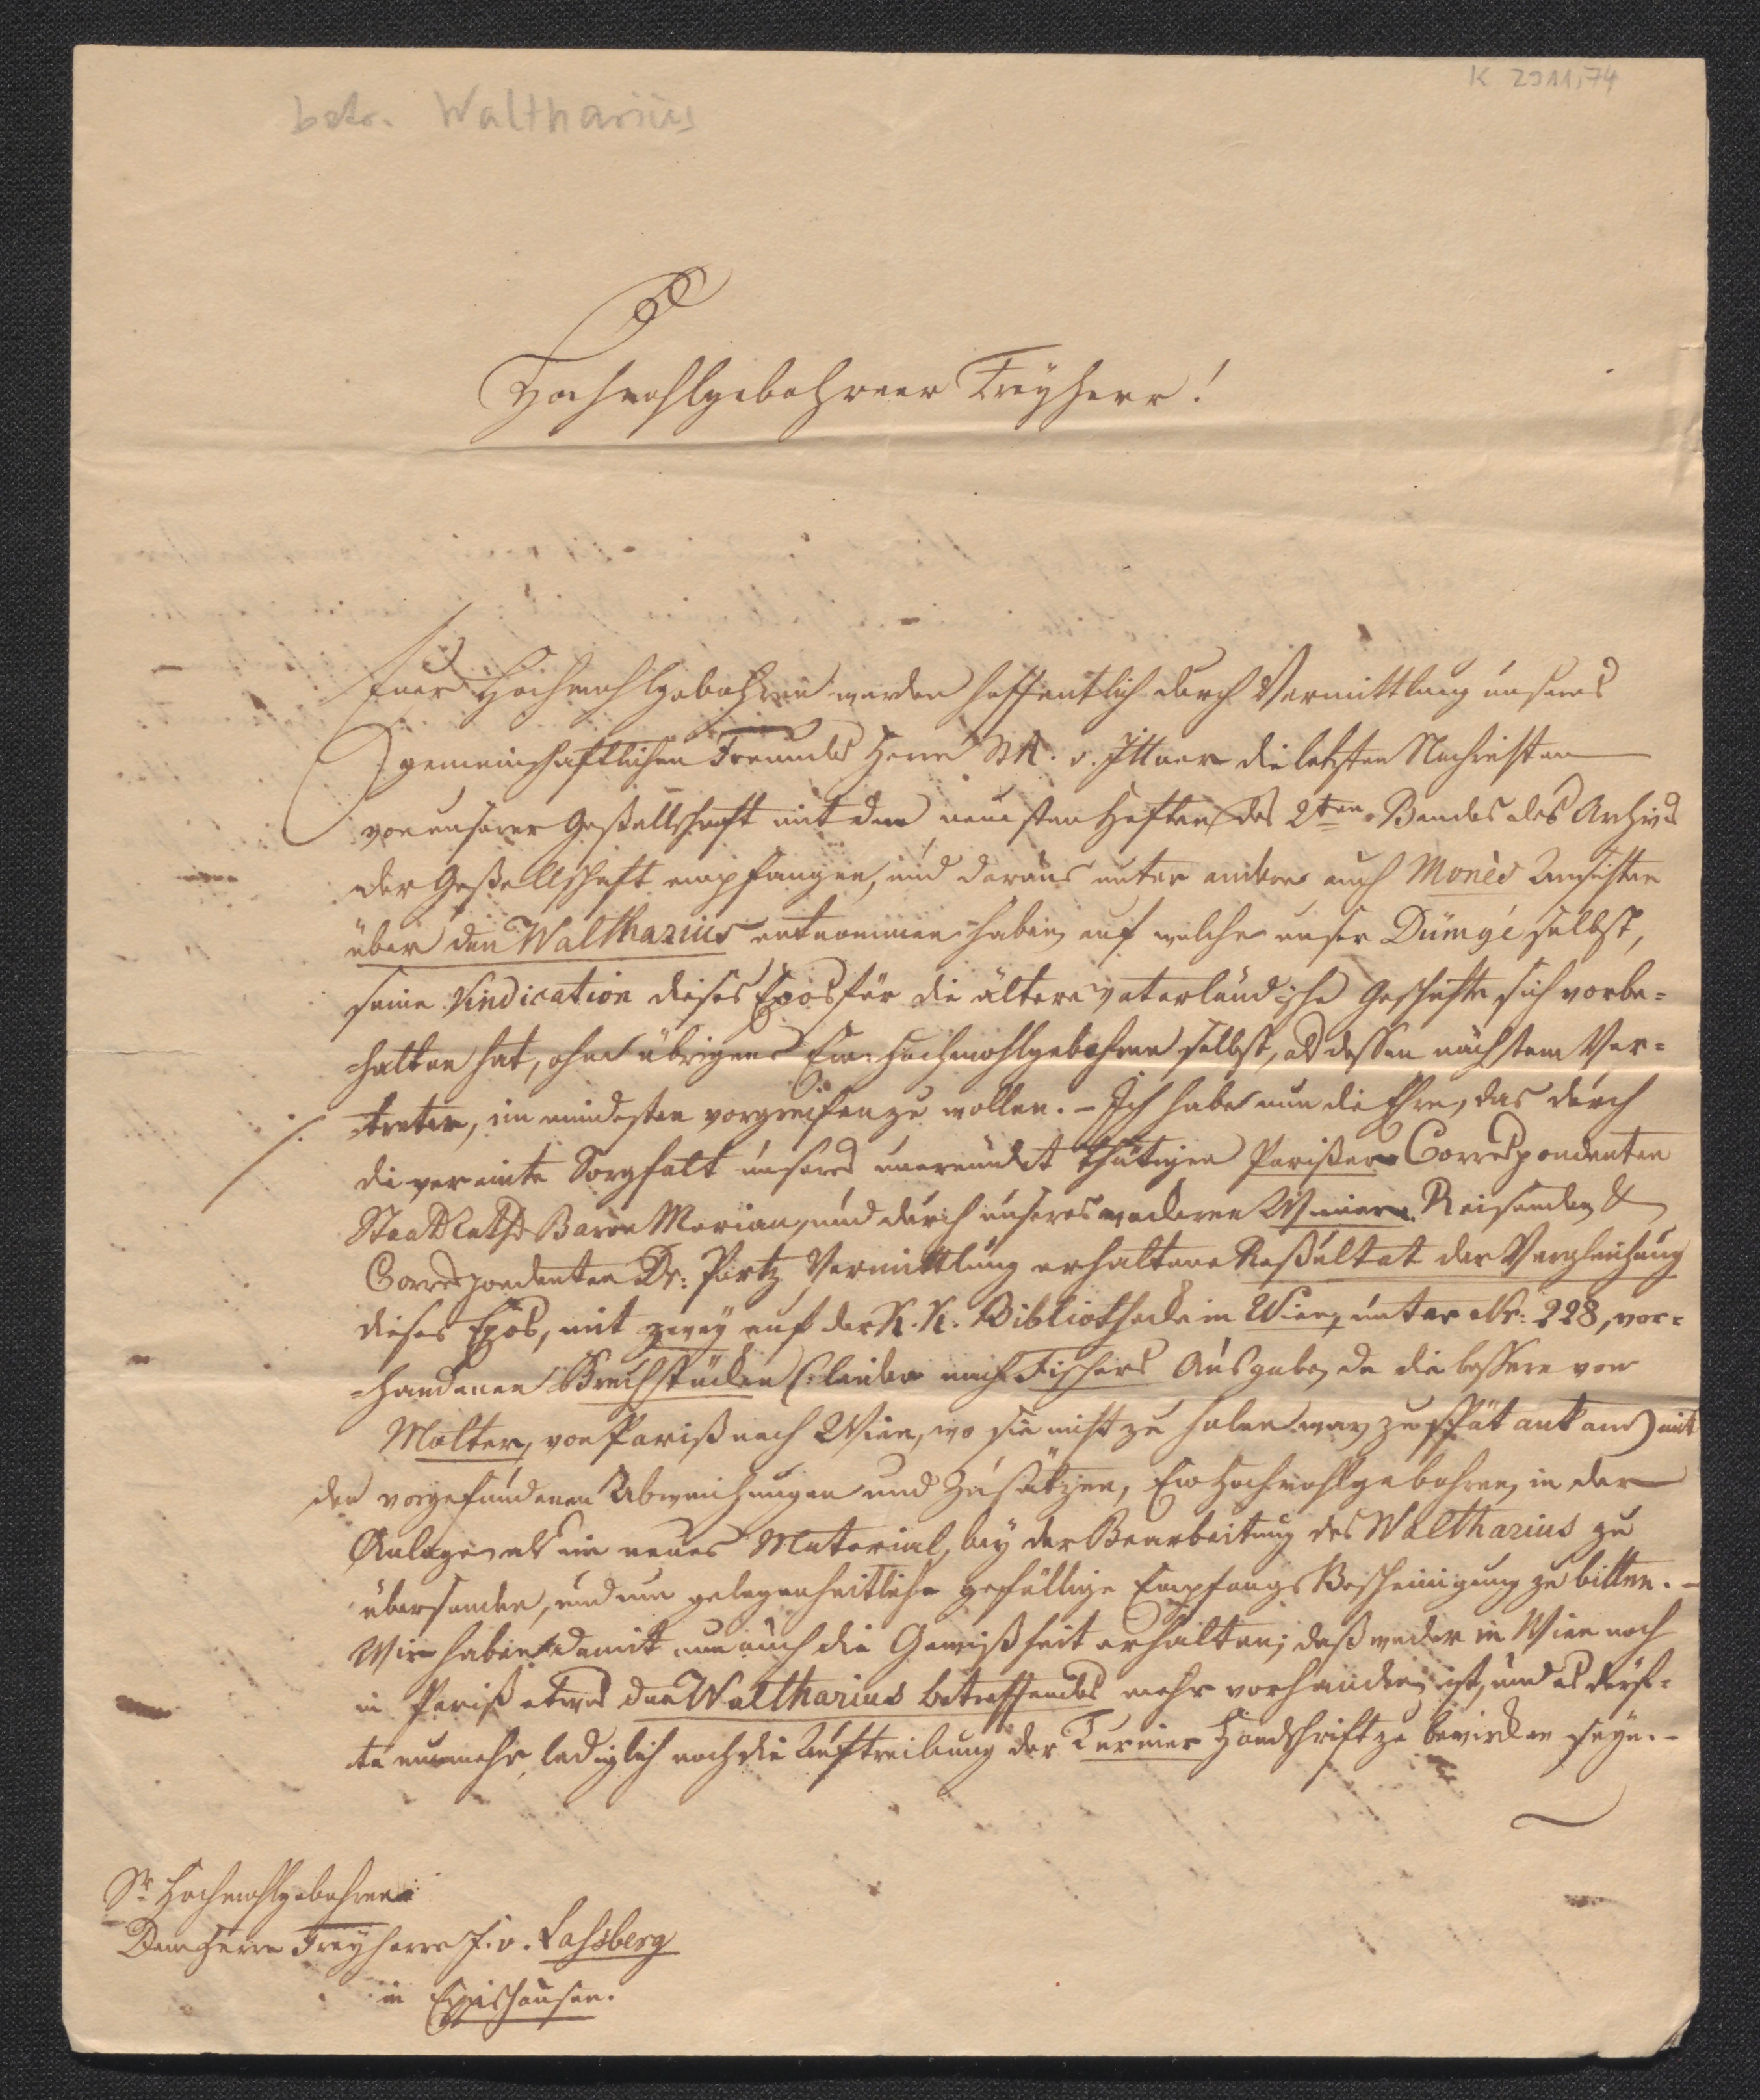 K 2911,74
betr. Waltharius
Hochwohlgebohrner Freyherr!
Euer Hochwohlgebohren werden hoffentlich durch Vermittlung unseres
gemeinschaftlichen Freundes Herrn v. Ittner die letzten Nachrichten
von unserer Geßellschaft mit den neuesten Heften des 2ten Bandes des Archivs
der Geßellschaft empfangen, und daraus unter andern auch Mone's Ansichten
über den Waltharius entnommen haben, auf welche unser Dümgé selbst,
seine Vindication dieses Epos für die ältere vaterländische Geschichte sich vorbe=
=halten hat, ohne übrigens Euer Hochwohlgebohren selbst, als dessen nächstem Ver=
=treter, im mindesten vorgreifen zu wollen. – Ich habe nun die Ehre, das durch
die vereinte Sorgfalt unseres unermüdet thätigen Parißer Correspondenten
Staatsraths Baron Merian, und durch unseres wackeren Wiener Reisenden &
Correspondenten Dr: Pertz Vermittlung erhaltene Reßultat der Vergleichung
dieses Epos, mit zwey auf der K. K. Bibliotheck in Wien, unter Nr: 228, vor=
=handenen Bruchstücken (leider nach Fischers Ausgabe, da die bessere von
Molter, von Pariß nach Wien, wo sie nicht zu haben war, zu spät ankam) mit
den vorgefundenen Abweichungen und Zusätzen, Euer Hochwohlgebohren, in der
Anlage, als ein neues Material, bey der Bearbeitung des Waltharius zu
übersenden, und um gelegenheitliche gefällige Empfangs Bescheinigung zu bitten. –
Wir haben damit nun auch die Gewißheit erhalten, daß weder in Wien noch
in Pariß etwas den Waltharius betreffendes mehr vorhanden ist, und es dürf=
te nunmehr lediglich noch die Auftreibung der Turiner Handschrift zu bewirken seyn. –
Sr Hochwohlgebohren
Dem Herrn Freyherrn J. v. Laßberg
in Eppishausen.